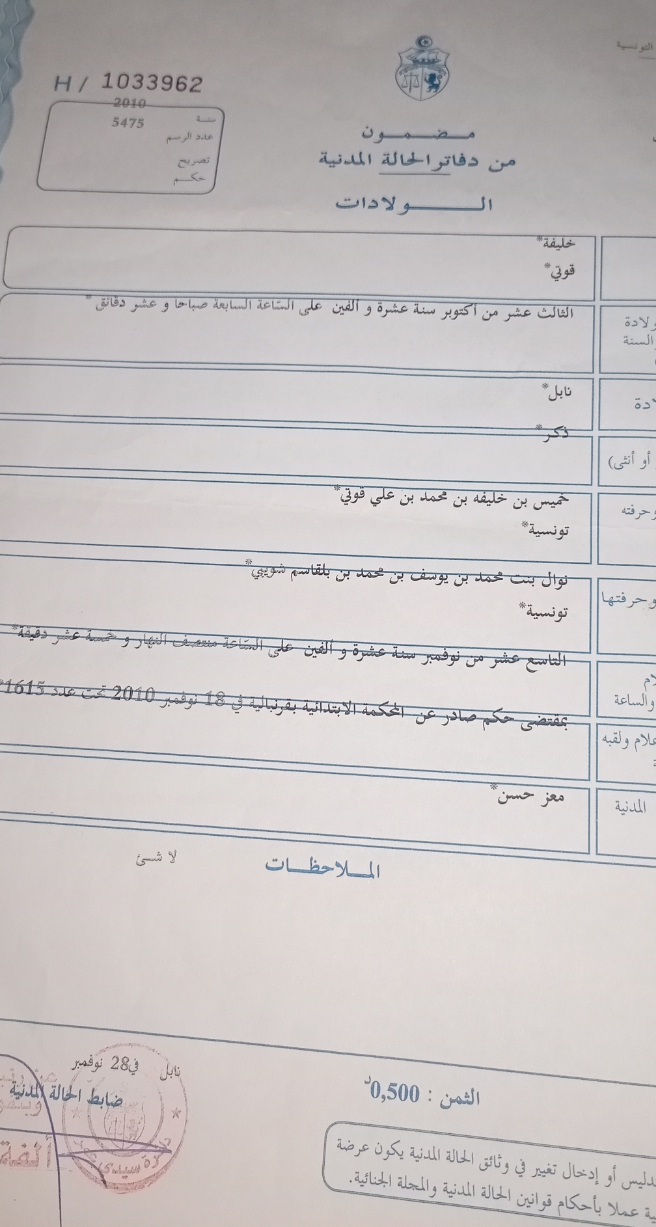 التونسية
H / 1033962
سنة 2010
عدد الرسم 5475
تصريح
حكم
مضمون
من دفاتر الحالة المدنية
الولادات
خليفة*
قوتي*
الثالث عشر من أكتوبر سنة عشرة و ألفين على الساعة السابعة صباحا و عشر دقائق*
ولادة
السنة
نابل*
ادة
ذكر*
أو أنثى)
خميس بن خليفه بن محمد بن علي قوتي*
وحرفته
تونسية*
نوال بنت محمد بن يوسف بن محمد بن بلقاسم شويبي*
وحرفتها
تونسية*
التاسع عشر من نوفمبر سنة عشرة و ألفين على الساعة منتصف النهار و خمسة عشر دقيقة*
والساعة
بمقتضى حكم صادر عن المحكمة الابتدائية بقرنبالية في 18 نوفمبر 2010 تحت عدد 1615*
علام ولقبه
معز حسن*
المدنية
الملاحظات
لا شئ
نابل في 28 نوفمبر
ضابط الحالة المدنية
الثمن : 0,500د
ألفة
سيدي
دليس أو إدخال تغيير في وثائق الحالة المدنية يكون عرضة
ية عملا بأحكام قوانين الحالة المدنية والمجلة الجنائية.